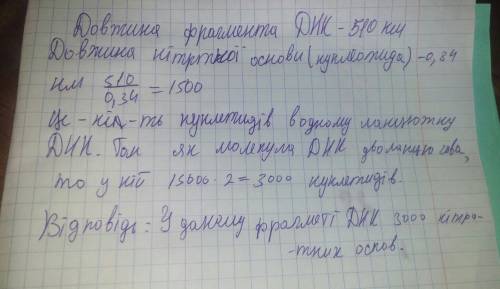 Довжина фрагмента ДНК - 510 нм
Довжина нітратної основи (нуклеотида) - 0,34
нм 510/0,34 = 1500
Це - кілк-ть нуклетидів в одному ланцюжку
ДНК. Так як молекула ДНК дволанцюгова,
то у ній 15000 · 2 = 3000 нуклетидів.
Відповідь: У даному фрагметі ДНК 3000 нітра-
-тних основ.